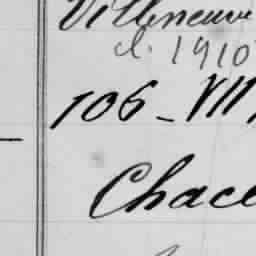 Villeneuve
d. 1910
106 - VIII
Chace